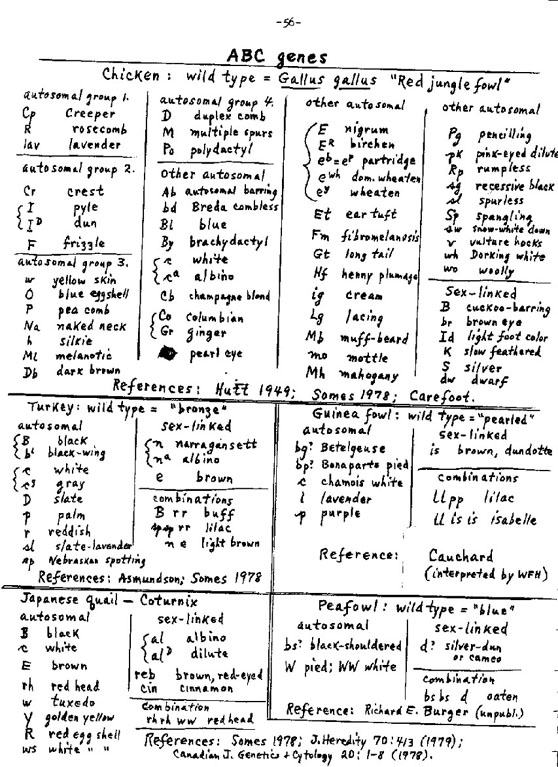 -56-
ABC genes
Chicken: wild type = Gallus gallus "Red jungle fowl"
autosomal group 1.
Cp creeper
R rosecomb
lav lavender
autosomal group 2.
Cr crest
I pyle
I^D dun
F frizzle
autosomal group 3.
w yellow skin
O blue eggshell
P pea comb
Na naked neck
h silkie
Ml melanotic
Db dark brown
autosomal group 4.
D duplex comb
M multiple spurs
Po polydactyl
other autosomal
Ab autosomal barring
bd Breda combless
Bl blue
By brachydactyl
c white
c^a albino
Cb champagne blond
Co columbian
Gr ginger
pearl eye
other autosomal
E nigrum
E^R birchen
e^b=e^p partridge
e^wh dom. wheaten
e^y wheaten
Et ear tuft
Fm fibromelanosis
Gt long tail
Hf henny plumage
ig cream
Lg lacing
Mb muff-beard
mo mottle
Mh mahogany
other autosomal
Pg pencilling
pk pink-eyed dilute
Rp rumpless
sg recessive black
sl spurless
Sp spangling
sw snow-white down
v vulture hocks
wh Dorking white
wo woolly
sex-linked
B cuckoo-barring
br brown eye
Id light foot color
K slow feathered
S silver
dw dwarf
References: Hutt 1949; Somes 1978; Carefoot.
Turkey: wild type = "bronze"
autosomal
B black
b' black-wing
c white
c^g gray
D slate
p palm
r reddish
sl slate-lavender
sp Nebraskan spotting
sex-linked
n narragansett
n^a albino
e brown
combinations
B rr buff
sp sp rr lilac
n e light brown
References: Asmundson; Somes 1978
Guinea fowl: wild type = "pearled"
autosomal
bg? Betelgeuse
bp? Bonaparte pied
c chamois white
l lavender
p purple
sex-linked
is brown, dundotte
combinations
ll pp lilac
ll is is isabelle
Reference: Cauchard
(interpreted by WFH)
Japanese quail – Coturnix
autosomal
B black
c white
E brown
rh red head
w tuxedo
Y golden yellow
R red egg shell
ws white " "
sex-linked
al albino
al^D dilute
reb brown, red-eyed
cin cinnamon
combination
rh rh ww red head
References: Somes 1978; J. Heredity 70:413 (1979);
Canadian J. Genetics + Cytology 20: 1-8 (1978).
Peafowl: wild type = "blue"
autosomal
bs? black-shouldered
W pied; WW white
sex-linked
d? silver-dun
or cameo
combination
bs bs d oaten
Reference: Richard E. Burger (unpubl.)